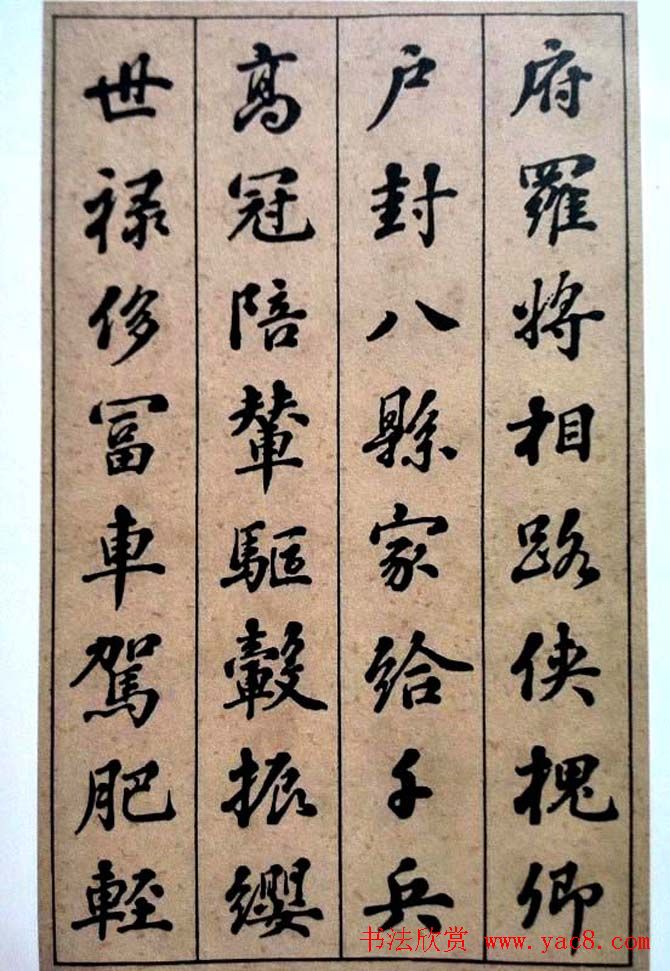 府羅將相路俠槐卿
户封八縣家給千兵
高冠陪輦驅轂振纓
世禄侈富車駕肥輕
书法欣赏 www.yac8.com